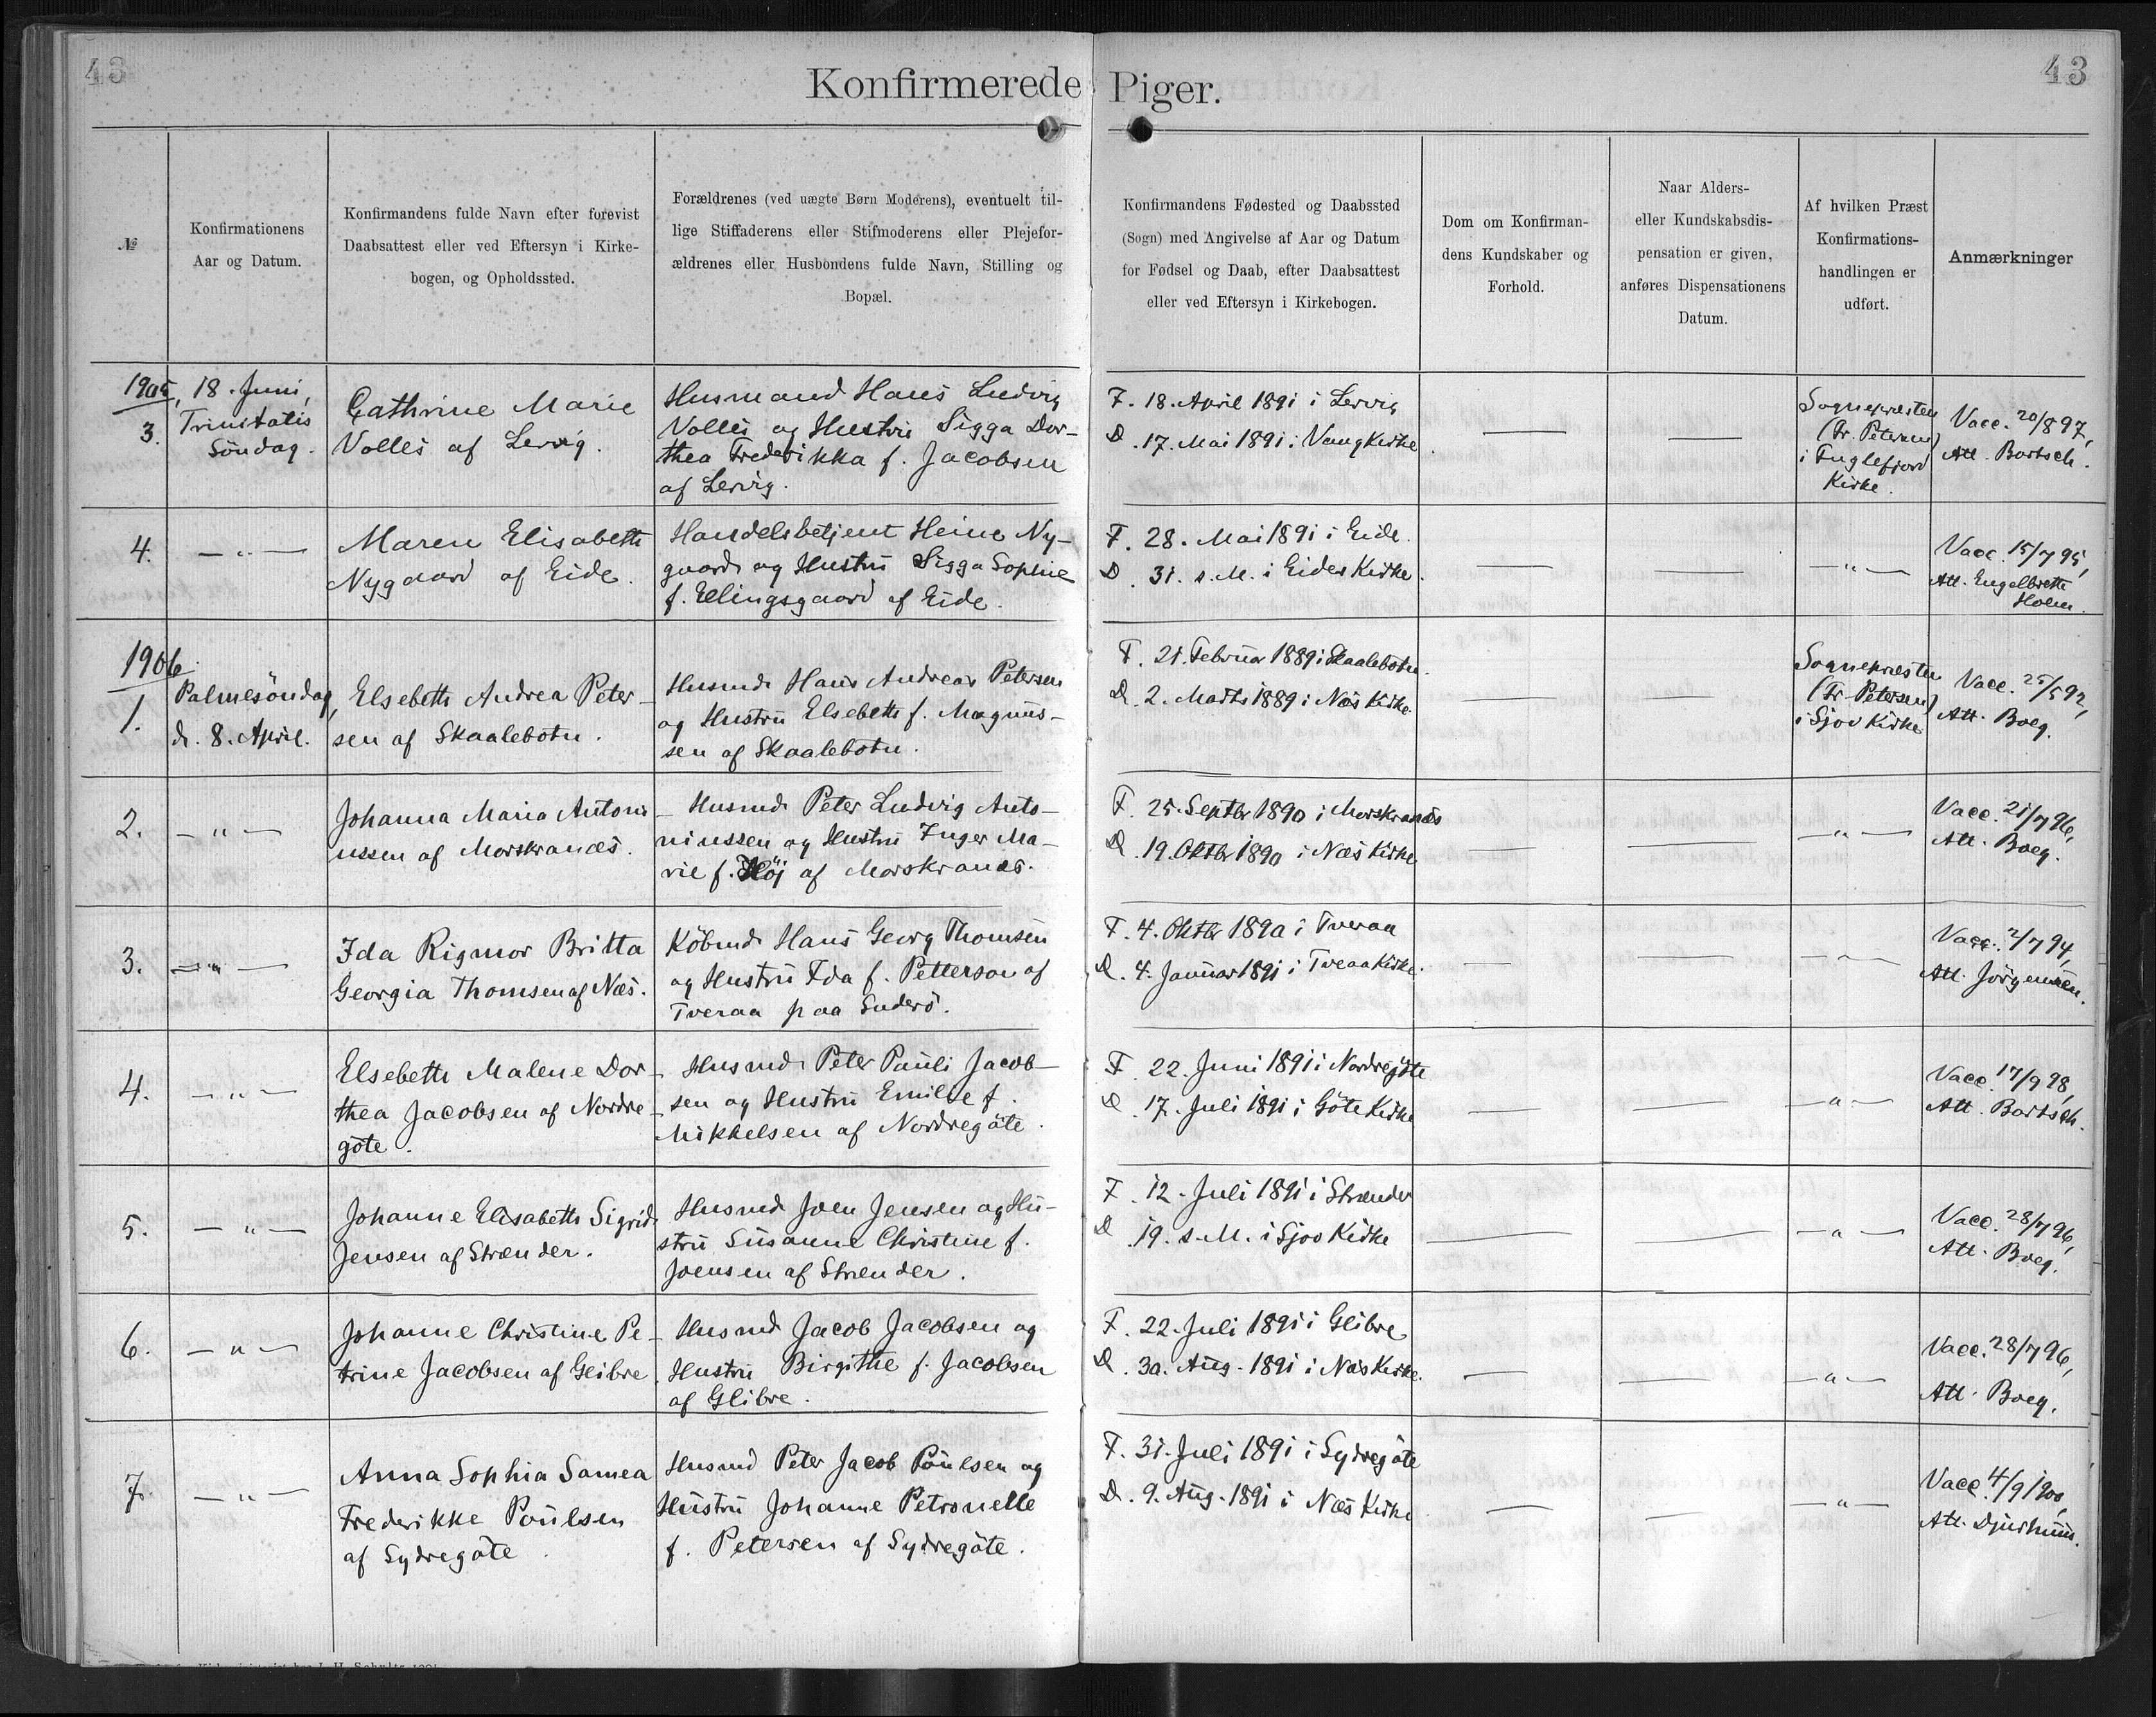 43
Konfirmerede Piger.
43
№
Konfirmationens
Aar og Datum.
Konfirmandens fulde Navn efter forevist
Daabsattest eller ved Eftersyn i Kirke-
bogen, og Opholdssted.
Forældrenes (ved uægte Børn Moderens), eventuelt til-
lige Stiffaderens eller Stifmoderens eller Plejefor-
ældrenes eller Husbondens fulde Navn, Stilling og
Bopæl.
Konfirmandens Fødested og Daabssted
(Sogn) med Angivelse af Aar og Datum
for Fødsel og Daab, efter Daabsattest
eller ved Eftersyn i Kirkebogen.
Dom om Konfirman-
dens Kundskaber og
Forhold.
Naar Alders-
eller Kundskabsdis-
pensation er given,
anføres Dispensationens
Datum.
Af hvilken Præst
Konfirmations-
handlingen er
udført.
Anmærkninger
1905,
3.
18. Juni,
Trinitatis
Söndag.
Cathrine Marie
Volles af Lervig.
Husmand Hans Ludvig
Volles og Hustru Sigga Dor-
thea Frederikka f. Jacobsen
af Lervig.
F. 18. April 1891 i Lervig
D. 17. Mai 1891 i Vaag Kirke.
—
—
Sognepræsten
(Fr. Petersen)
i Fuglefjord
Kirke.
Vacc. 20/8 97,
Att. Bartsch.
4.
— " —
Maren Elisabeth
Nygaard af Eide.
Handelsbetjent Heine Ny-
gaard og Hustru Sigga Sophie
f. Ellingsgaard af Eide.
F. 28. Mai 1891 i Eide.
D. 31. s. M. i Eides Kirke.
—
—
— " —
Vacc. 15/7 95,
Att. Engelbrett
Holm.
1906
1.
Palmesöndag,
d. 8. April.
Elsebeth Andrea Peter-
sen af Skaalebotn.
Husmd. Hans Andreas Petersen
og Hustru Elsebeth f. Magnus-
sen af Skaalebotn.
F. 21. Februar 1889 i Skaalebotn.
D. 2. Marts 1889 i Næs Kirke.
—
—
Sognepræsten
(Fr. Petersen)
i Sjov Kirke
Vacc. 25/5 92,
Att. Boeg.
2.
— " —
Johanna Maria Antoni-
ussen af Morskranes.
Husmd. Peter Ludvig Anto-
niussen og Hustru Inger Ma-
rie f. Höj af Morskranes.
F. 25. Septbr 1890 i Morskranes
D. 19. Oktbr 1890 i Næs Kirke
—
—
— " —
Vacc. 21/7 96,
Att. Boeg.
3.
— " —
Ida Rigmor Britta
Georgia Thomsen af Næs.
Köbmd. Hans Georg Thomsen
og Hustru Ida f. Petterson af
Tveraa paa Suderö.
F. 4. Oktbr 1890 i Tveraa
D. 4. Januar 1891 i Tveraa Kirke.
—
—
— " —
Vacc. 2/7 94,
Att. Jörgensen.
4.
— " —
Elsebeth Malene Dor-
thea Jacobsen af Nordre-
göte.
Husmd. Peter Pauli Jacob-
sen og Hustru Emilie f.
Mikkelsen af Nordregöte.
F. 22. Juni 1891 i Nordregöte
D. 17. Juli 1891 i Göte Kirke
—
—
— " —
Vacc. 17/9 98,
Att. Bartsch.
5.
— " —
Johanne Elisabeth Sigrid
Jensen af Strænder.
Husmd Joen Jensen og Hu-
stru Susanne Christine f.
Joensen af Strænder.
F. 12. Juli 1891 i Strænder
D. 19. s. M. i Sjov Kirke
—
—
— " —
Vacc. 28/7 96,
Att. Boeg.
6.
— " —
Johanne Christine Pe-
trine Jacobsen af Glibre.
Husmd Jacob Jacobsen og
Hustru Birgithe f. Jacobsen
af Glibre.
F. 22. Juli 1891 i Glibre
D. 30. Aug. 1891 i Næs Kirke.
—
—
— " —
Vacc. 28/7 96,
Att. Boeg.
7.
— " —
Anna Sophia Samea
Frederikke Poulsen
af Sydregöte.
Husmd Peter Jacob Poulsen og
Hustru Johanne Petronelle
f. Petersen af Sydregöte.
F. 31. Juli 1891 i Sydregöte
D. 9. Aug. 1891 i Næs Kirke
—
—
— " —
Vacc. 4/9 1900,
Att. Djurhuus.